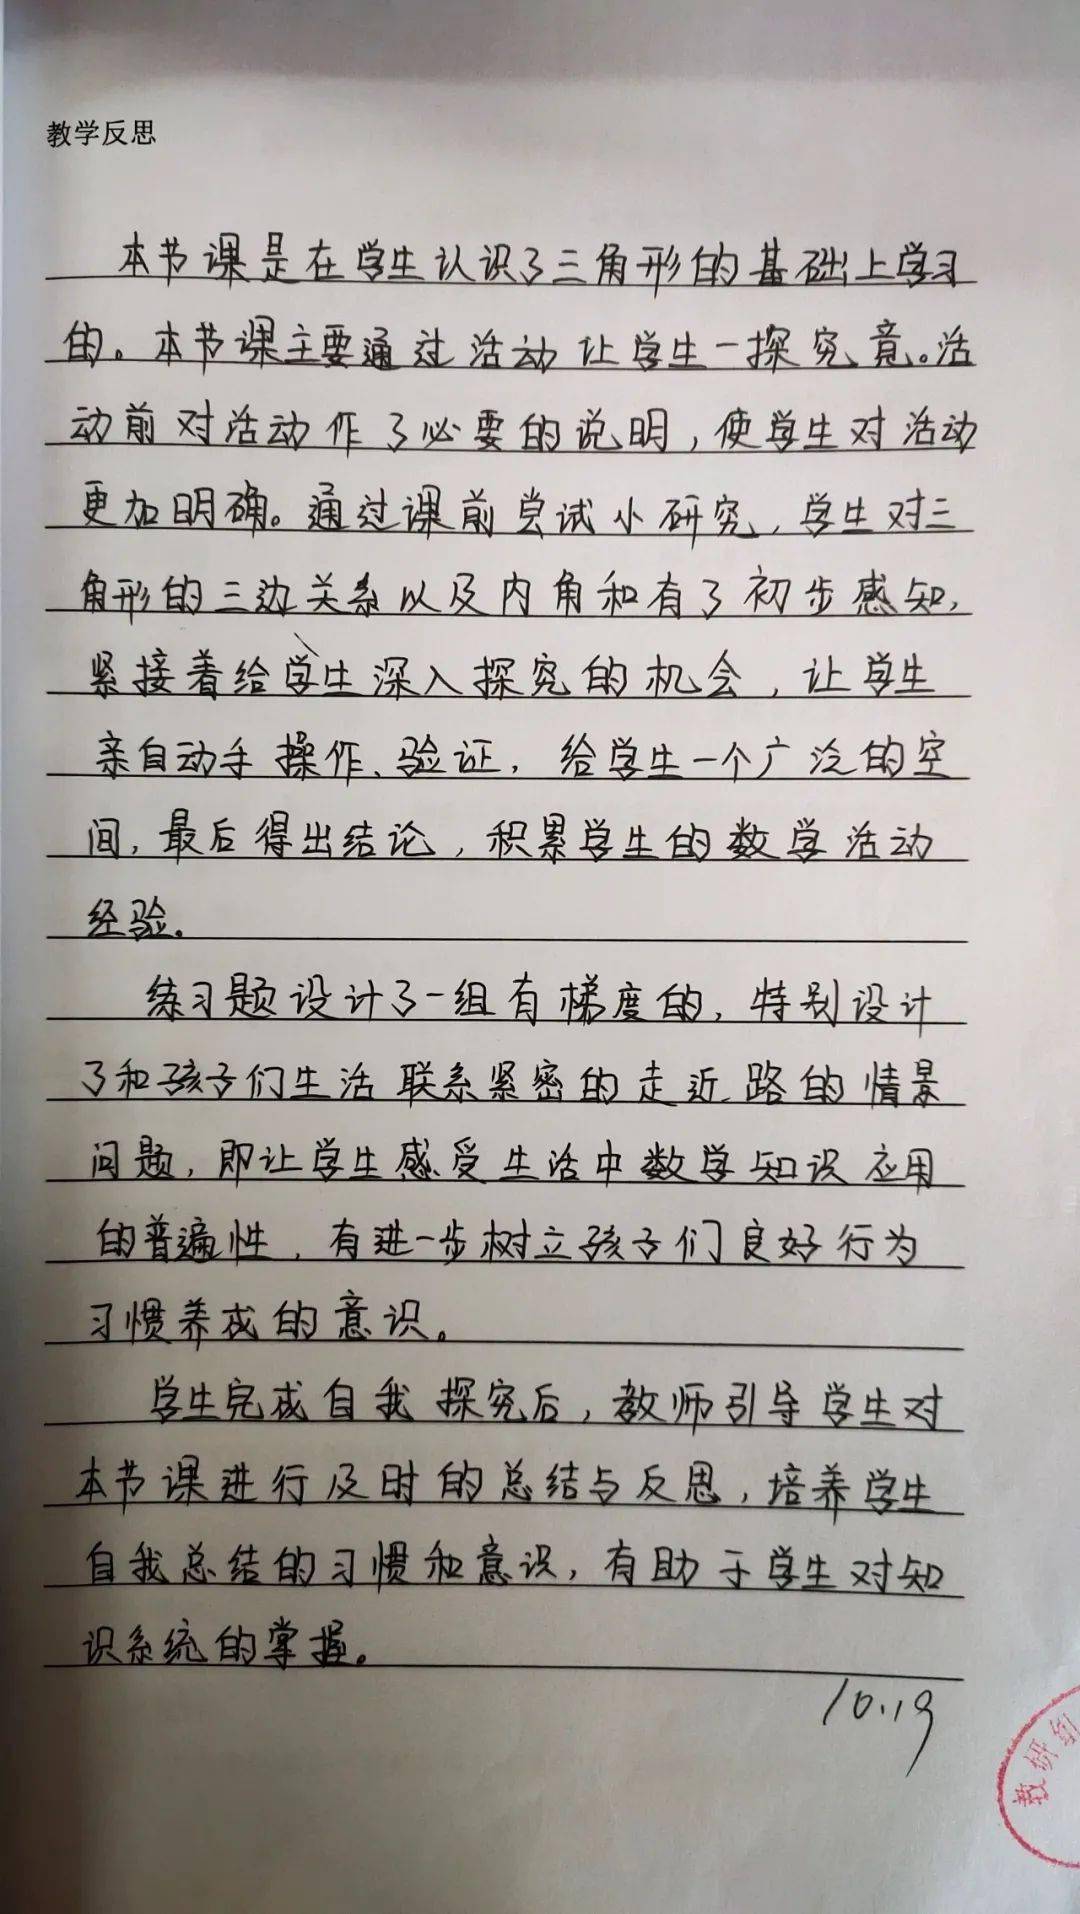 教学反思
本节课是在学生认识了三角形的基础上学习
的。本节课主要通过活动让学生一探究竟。活
动前对活动作了必要的说明,使学生对活动
更加明确。通过课前尝试小研究,学生对三
角形的三边关系以及内角和有了初步感知,
紧接着给学生深入探究的机会,让学生
亲自动手操作、验证,给学生一个广泛的空
间,最后得出结论,积累学生的数学活动
经验。
练习题设计了一组有梯度的,特别设计
了和孩子们生活联系紧密的走近路的情景
问题,即让学生感受生活中数学知识应用
的普遍性,有进一步树立孩子们良好行为
习惯养成的意识。
学生完成自我探究后,教师引导学生对
本节课进行及时的总结与反思,培养学生
自我总结的习惯和意识,有助于学生对知
识系统的掌握。
10.19
教研组